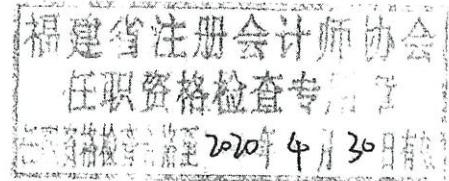 福建省注册会计师协会
任职资格检查专用章
任职资格检查 至2020年4月30日有效